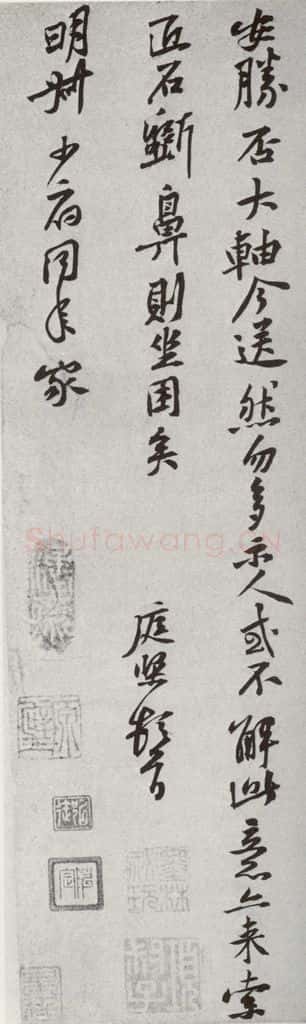 安勝否大軸今送然勿多示人或不解此意亦来索
匠石斲鼻則坐困矣
庭堅頓首
明州少府同年家
Shufawang.CN